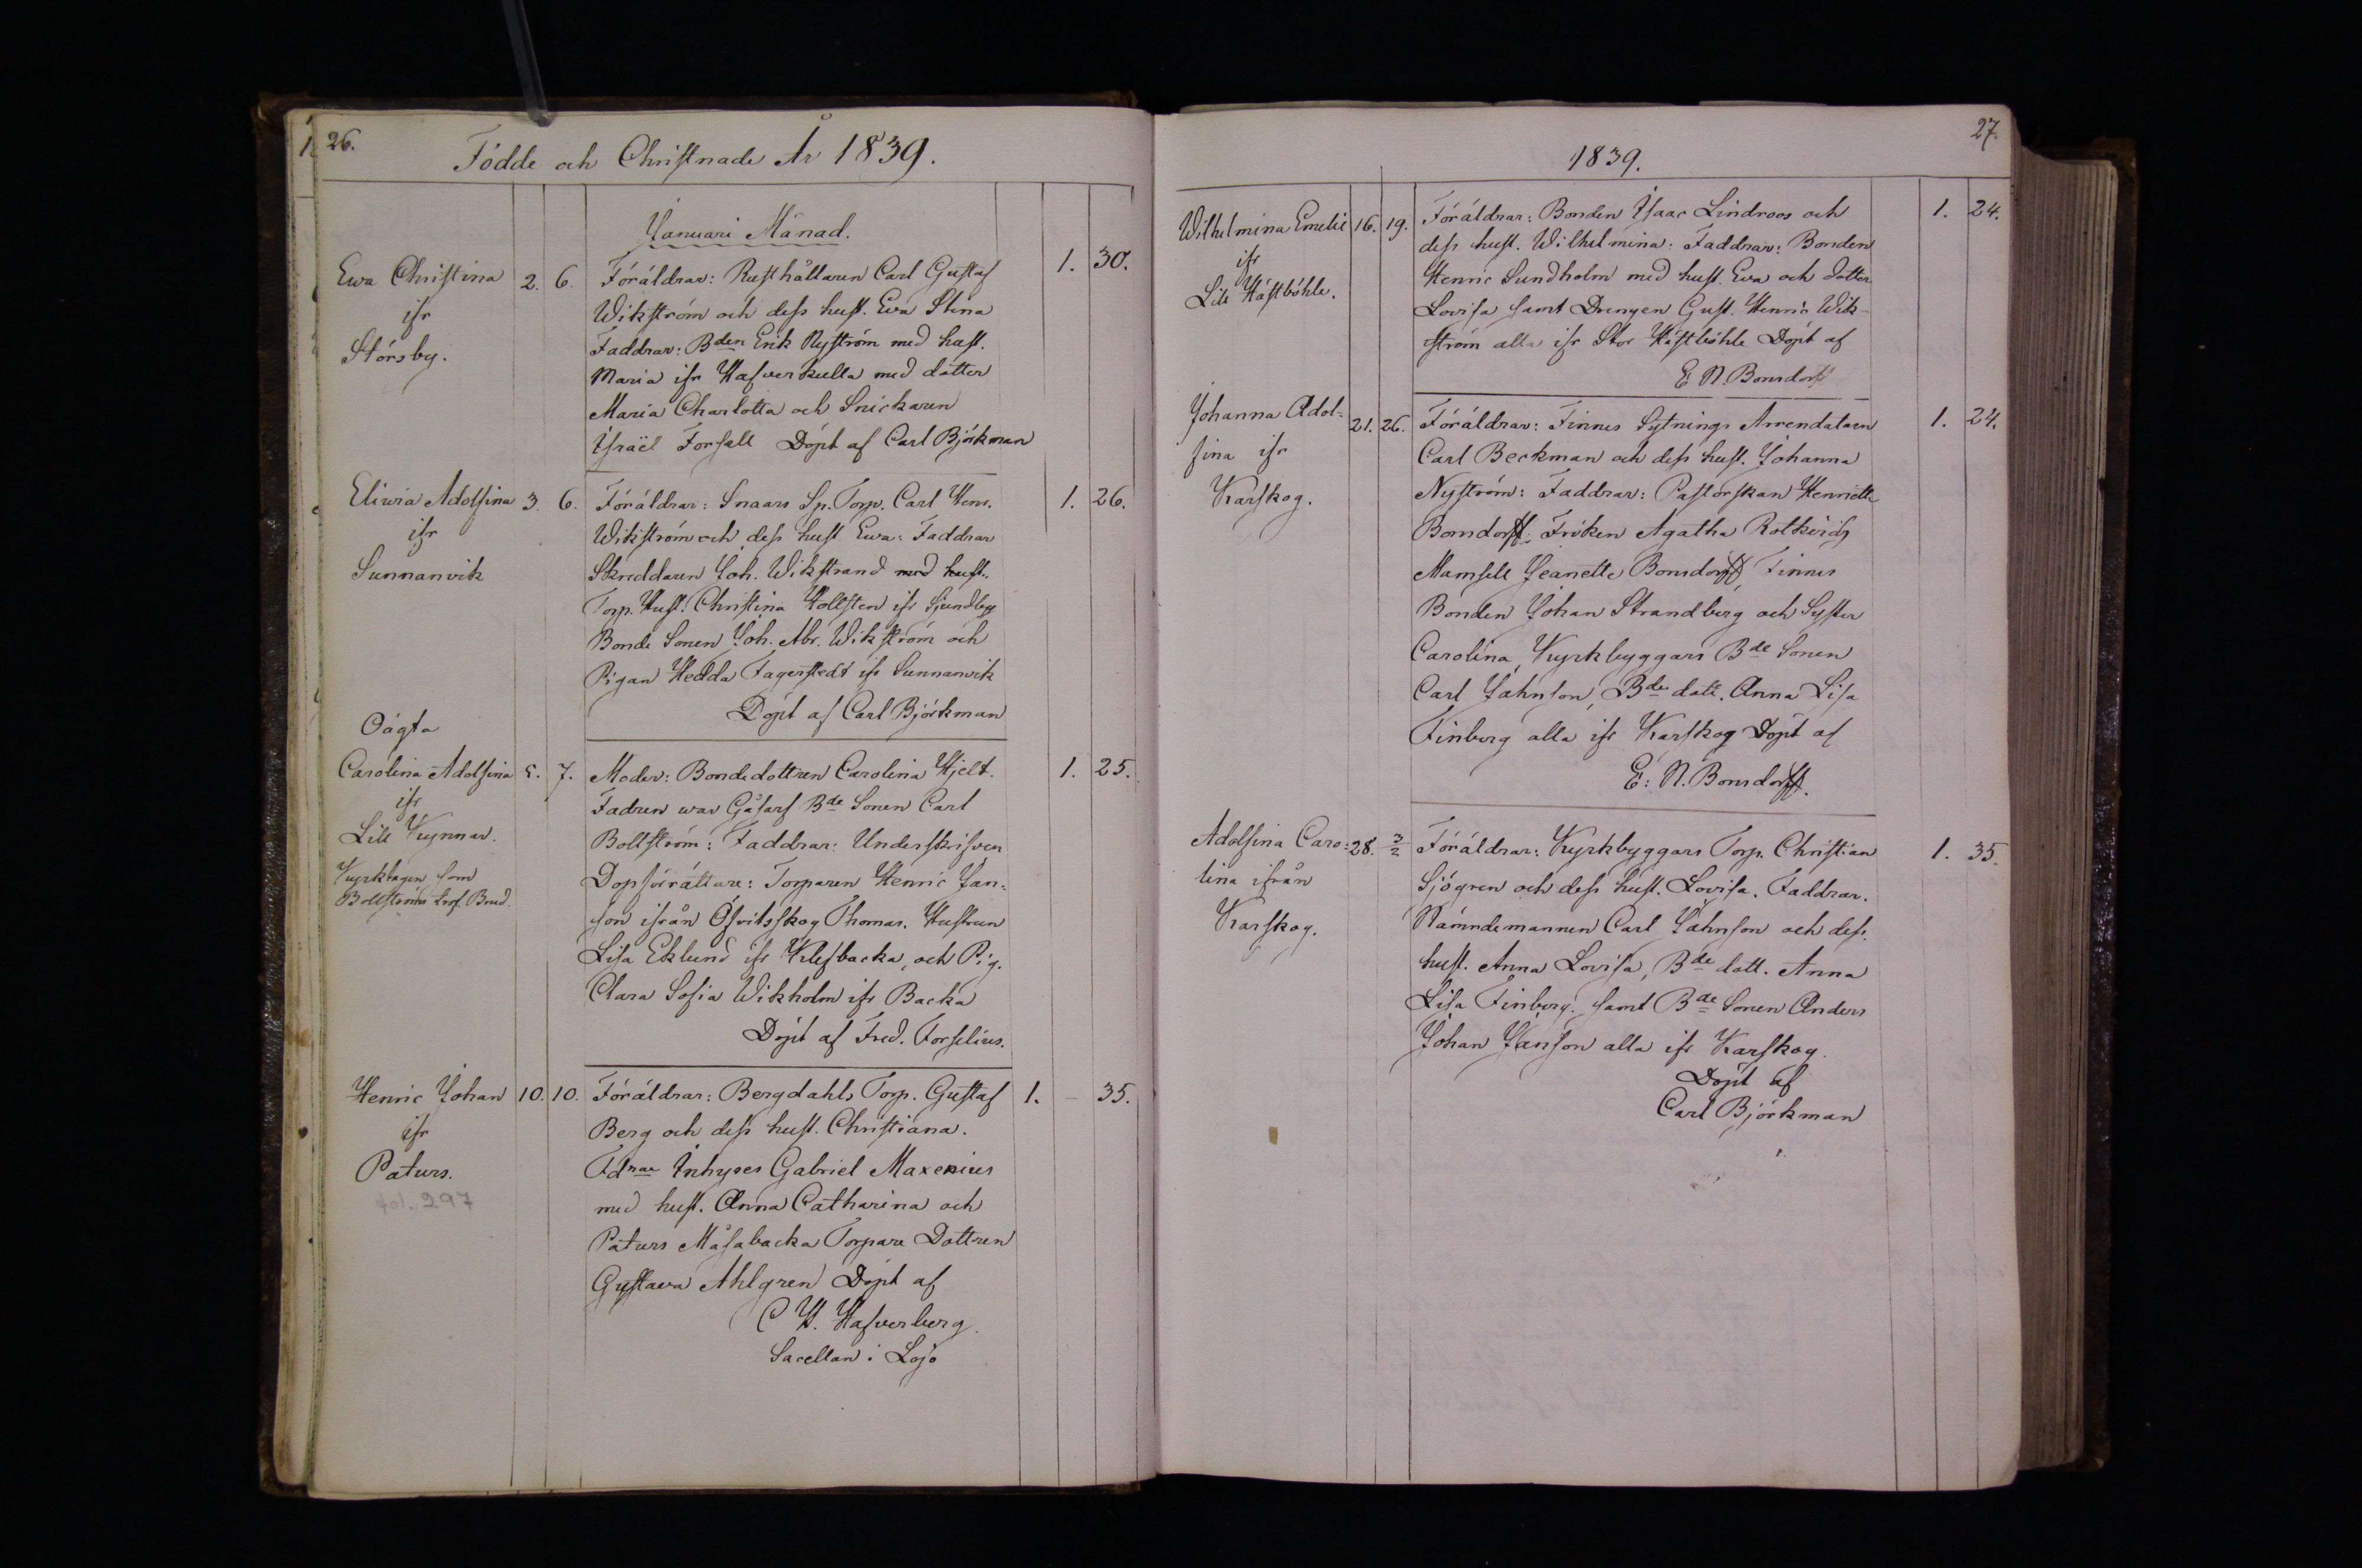 26.
Födde och Christnade År 1839.
Januari Månad.
Ewa Christina 2. 6. Föräldrar: Rusthållaren Carl Gustaf 1. 30.
ifr Wikström och dess hust. Eva Stina
Störsby. Faddrar: Bden Erik Nyström med hust.
Maria ifr Hafverkulla med dotter
Maria Charlotta och Snickaren
Israël Forsell Döpt af Carl Björkman
Eliwia Adolfina 3. 6. Föräldrar: Snaars Sp. Torp. Carl Henr. 1. 26.
ifr Wikström och dess hust Ewa: Faddrar
Sunnanvik Skreddaren Joh. Wikstrand med hust.
Torp. Hust. Christina Hollsten ifr Sjundby
Bonde Sonen Joh. Abr. Wikström och
Pigan Hedda Fagerstedt ifr Sunnanvik
Döpt af Carl Björkman
Oägta
Carolina Adolfina 5. 7. Moder: Bondedottren Carolina Hjelt. 1. 25.
ifr Fadren war Gåsars Bde Sonen Carl
Lill Kynnar. Bollström: Faddrar: Underskrifven
Kyrktagen som Dopförrättare: Torparen Henric Jan-
Bollströms trof. Brud. son ifrån Öfvitsskog Thomas. Hustrun
Lisa Eklund ifr Klefbacka, och Pig.
Clara Sofia Wikholm ifr Backa
Döpt af Fred. Forselius.
Henric Johan 10. 10. Föräldrar: Bergdahls Torp. Gustaf 1. 35.
ifr Berg och dess hust. Christiana.
Paturs. Fdrar Inhyses Gabriel Maxenius
fol. 297 med hust. Anna Catharina och
Paturs Måsabacka Torpare Dottren
Gustava Ahlgren Döpt af
C H. Hafverberg
Sacellan i Lojo
27.
1839.
Wilhelmina Emelie 16. 19. Föräldrar: Bonden Isaac Lindroos och 1. 24.
ifr dess hust. Wilhelmina: Faddrar: Bonden
Lill Hästböhle. Henric Sundholm med hust. Eva och dotter
Lovisa samt Drengen Gust. Henric Wik-
ström alla ifr Stor Hästböhle Döpt af
E N. Bonsdorff
Johanna Adol- 21. 26. Föräldrar: Finnes Sytnings Arrendatorn 1. 24.
fina ifr Carl Beckman och dess hust. Johanna
Karskog. Nyström: Faddrar: Pastorskan Henriette
Bonsdorff. Fröken Agatha Rotkirch
Mamsell Jeanette Bonsdorff Finnes
Bonden Johan Strandberg och Syster
Carolina, Kyrkbyggars Bde Sonen
Carl Jahnson, Bde dott. Anna Lisa
Finberg alla ifr Karskog Döpt af
E: N. Bonsdorff.
Adolfina Caro- 28. 3/2 Föräldrar: Kyrkbyggars Torp. Christian 1. 35.
lina ifrån Sjögren och dess hust. Lovisa. Faddrar.
Karskog. Nämndemannen Carl Jahnson och dess
hust. Anna Lovisa, Bde dott. Anna
Lisa Finberg. samt Bde Sonen Anders
Johan Janson alla ifr Karskog.
Döpt af
Carl Björkman